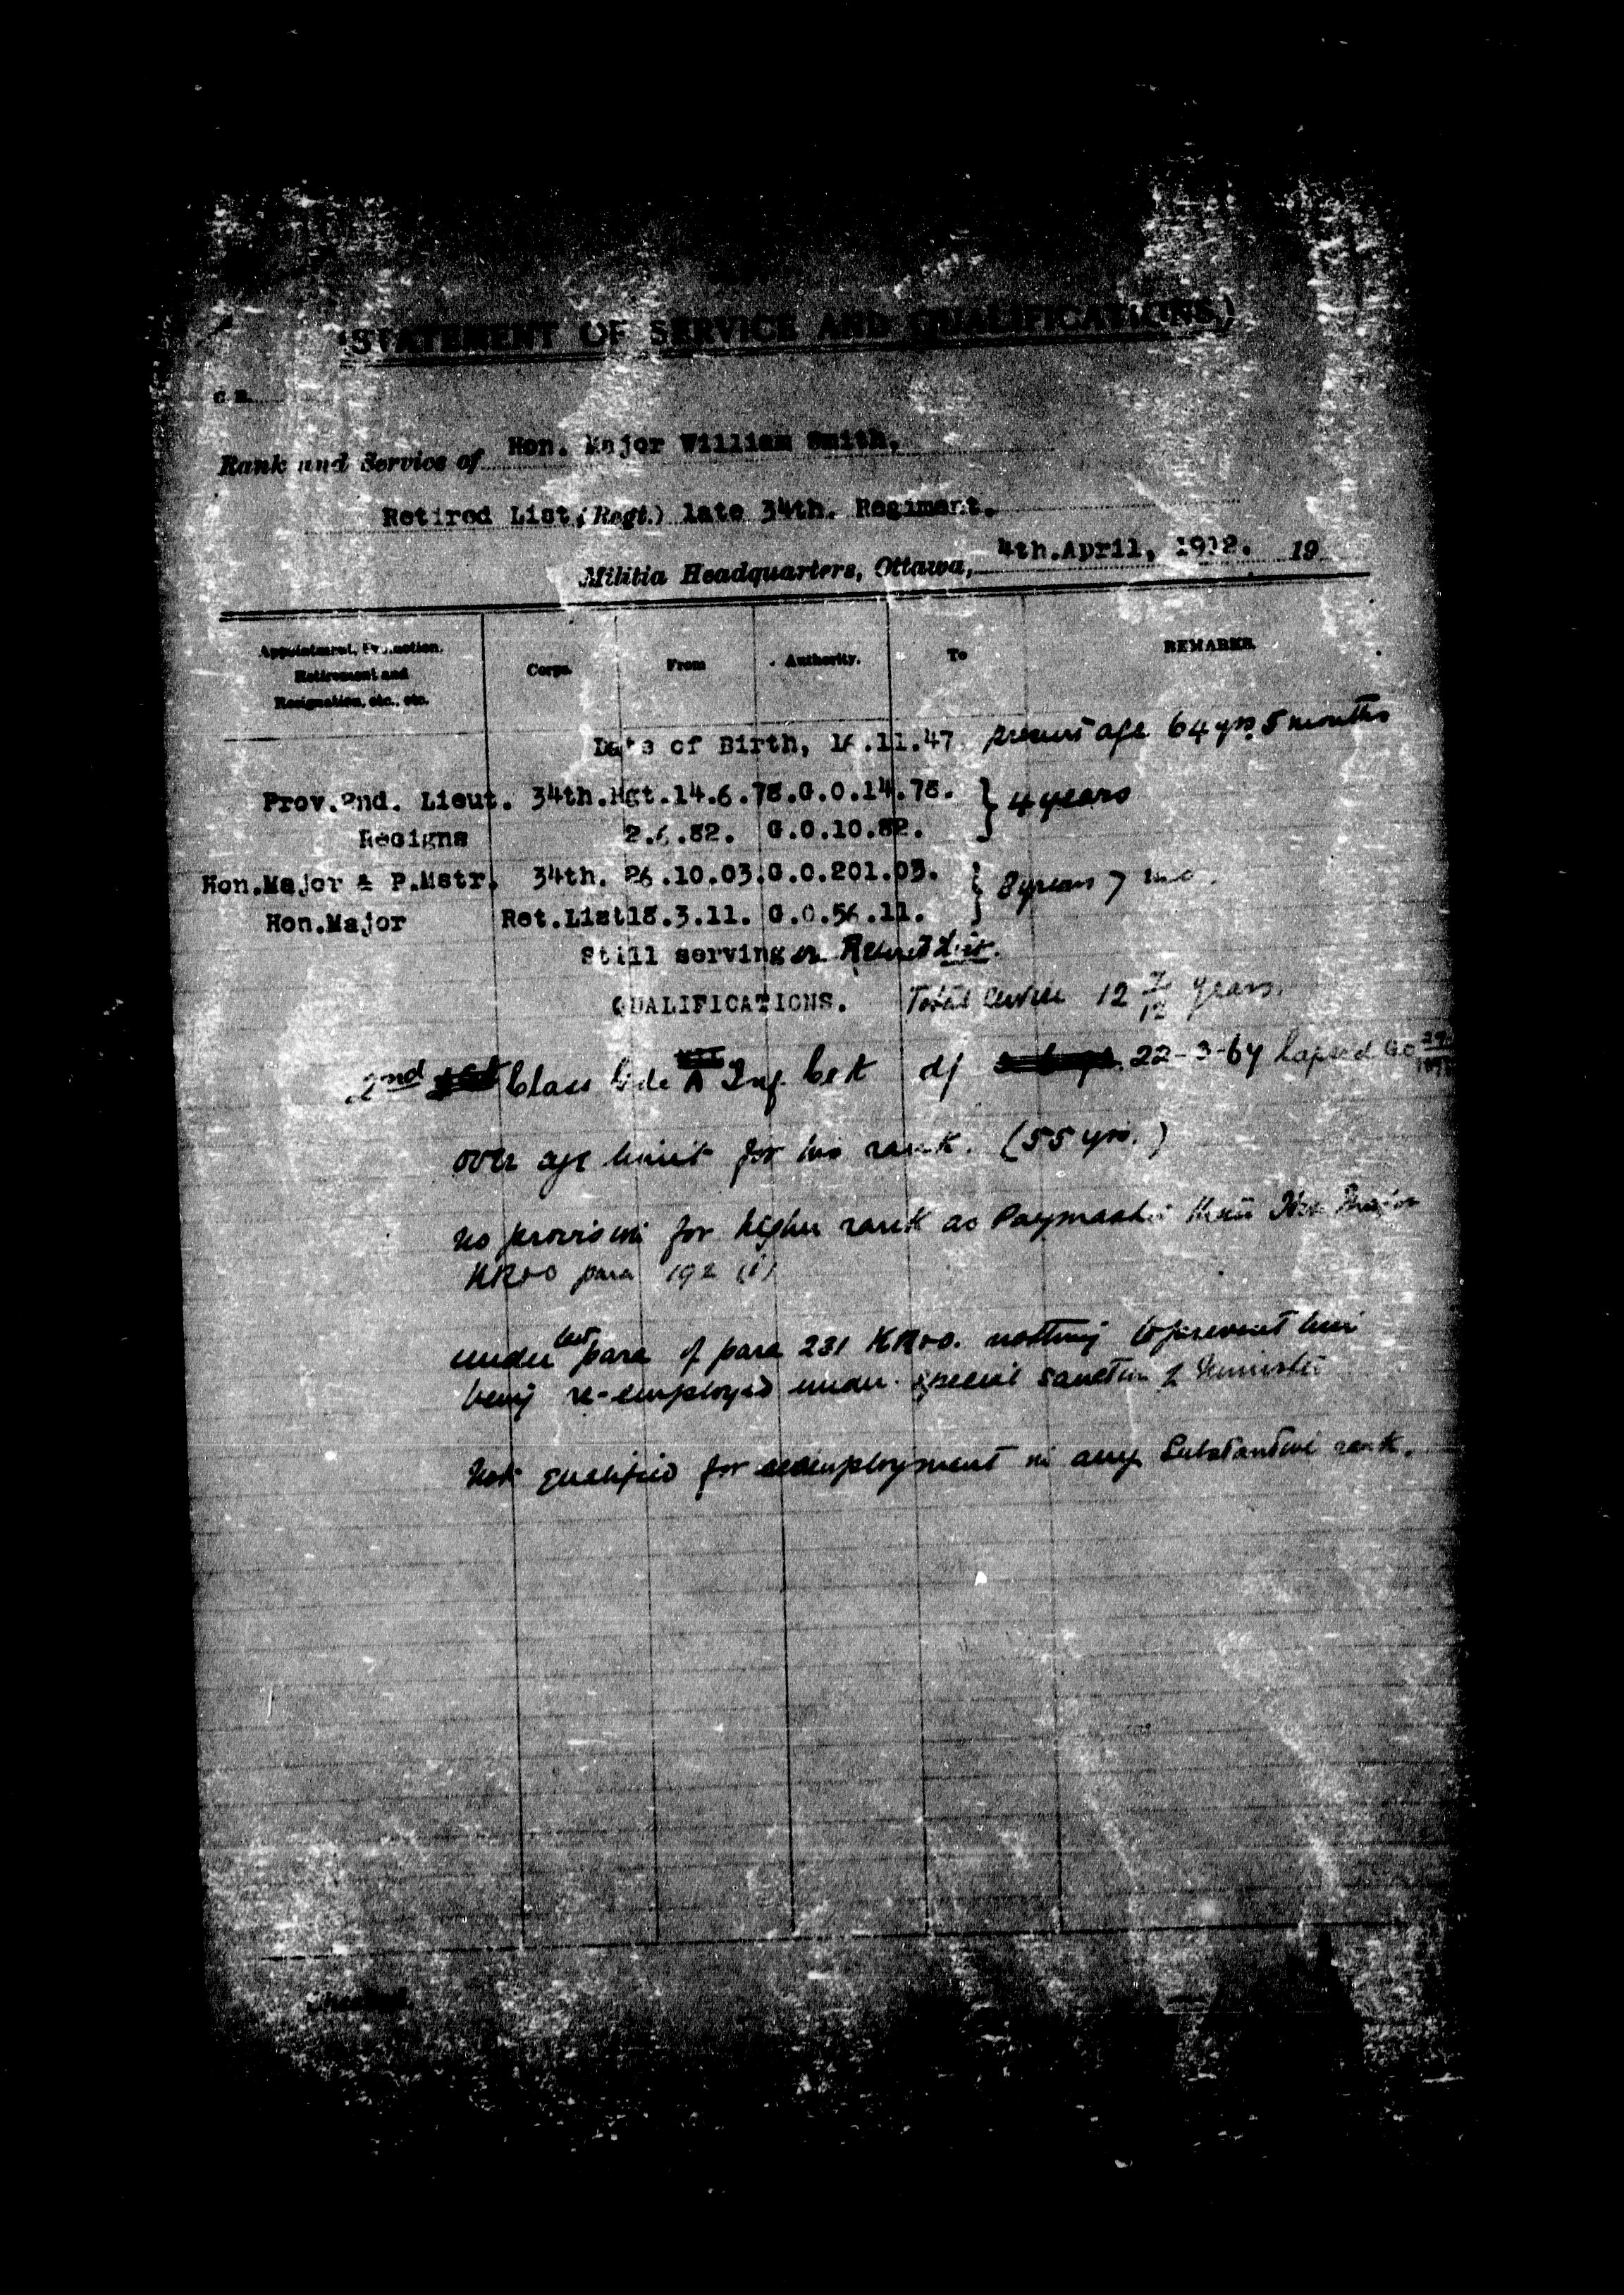 (STATEMENT OF SERVICE AND QUALIFICATIONS.)
Rank and Service of Hon. Major William Smith,
Retired List, (Regt.) late 34th. Regiment.
Militia Headquarters, Ottawa, 4th.April, 1912. 19
Appointment, Promotion, Retirement and Resignation, etc., etc. Corps. From Authority. To REMARKS.
Date of Birth, 16.11.47. present age 64 yrs 5 months
Prov.2nd. Lieut. 34th.Rgt.14.6.78.G.O.14.78. } 4 years
Resigns 2.6.82. G.O.10.82.
Hon.Major & P.Mstr. 34th. 26.10.03.G.O.201.03. } 8 years 7 mo.
Hon.Major Ret.List 18.3.11. G.O.56.11.
Still serving on Retired List.
QUALIFICATIONS. Total service 12 7/12 years.
2nd Class Grade A Inf. Cert d/ 22-3-67 lapsed G.O.
over age limit for his rank. (55 yrs.)
No provision for higher rank as Paymaster than Hon Major
KR+O para 192 (i)
under last para of para 231 KR+O. nothing to prevent him
being re-employed under special sanction of Minister
Not qualified for reemployment in any Substantive rank.